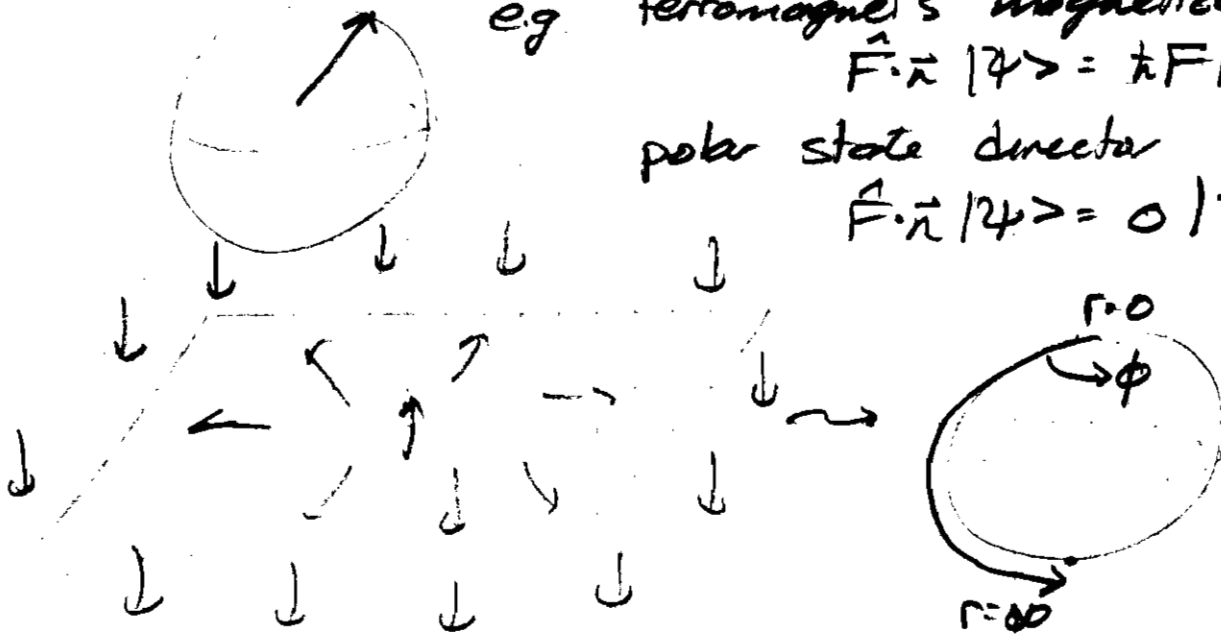 e.g ferromagnet's
F̂·n⃗ |ψ> = ħF
polar state director
F̂·n⃗ |ψ> = 0 |
r=0
φ
r=∞